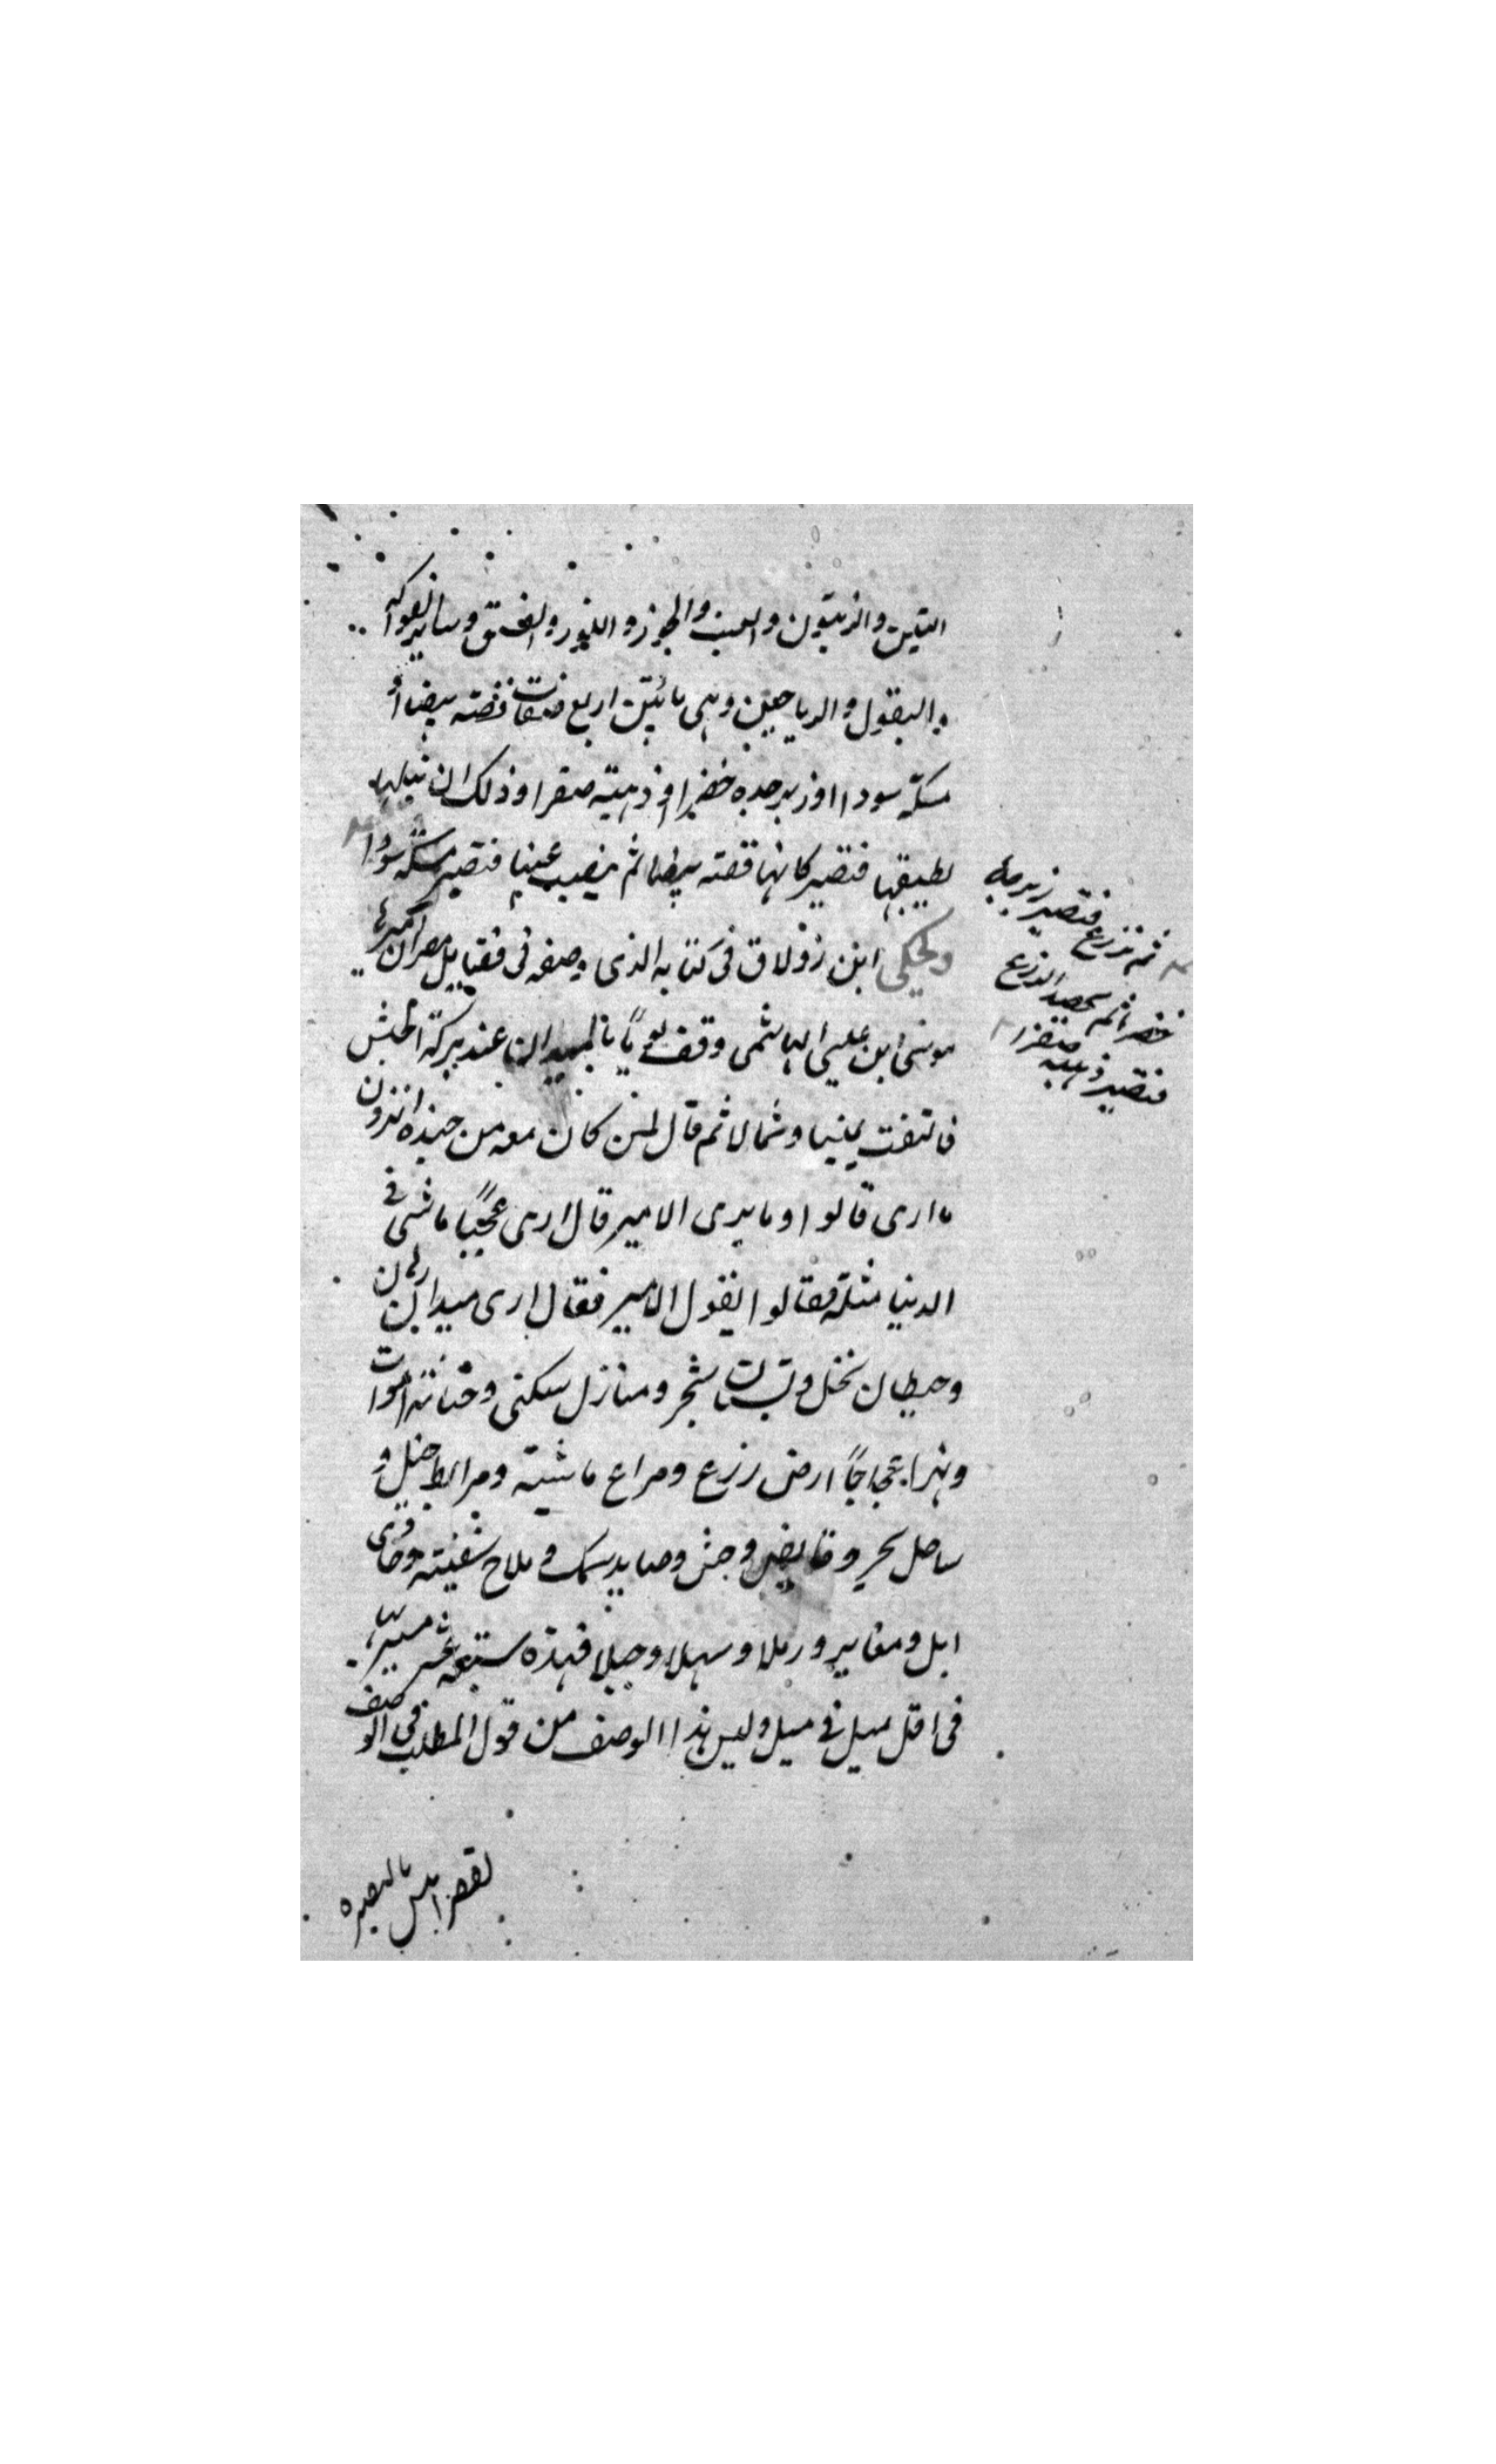 التين والزيتون والعنب والجوز واللوز والفستق وساير الفواكه
والبقول والرياحين وهى ما بين اربع صفات فضة بيضا او
مسكة سودا او زبرجده خضرا او ذهبية صفرا وذلك ان نيلها
يطبقها فتصير كانها فضة بيضا ثم ينصب عنها فتصير مسكة سودا
ثم تزرع فتصير زبرجدة
خضرا ثم يحصد الزرع
فتصير ذهبه صفرا
وحكى ابن زولاق فى كتابه الذى وصفه فى فضايل مصر ان اميرها
موسى ابن عيسى الهاشمى وقف يوماً بالميدان عند بركة الحبش
فالتفت يمينا وشمالا ثم قال لمن كان معه من جنده اترون
ما ارى قالوا وما يرى الامير قال ارى عجباً ما شى فى
الدنيا مثله فقالوا يقول الامير فقال ارى ميدان رهان
وحيطان نخل وبستان شجر ومنازل سكنى وجنانة اموات
ونهرا عجاجاً ارض زرع ومراع ماشية ومرابط خيل و
ساحل بحر وقايض وحش وصايد سمك وملاح سفينة وحادى
ابل ومقابر ورملا وسهلا وجبلا فهذه سبعة عشر مسيرها
فى اقل ميل فى ميل وليس هذا الوصف من قول المطلب فى الوصف
لقصر انس بالبصره